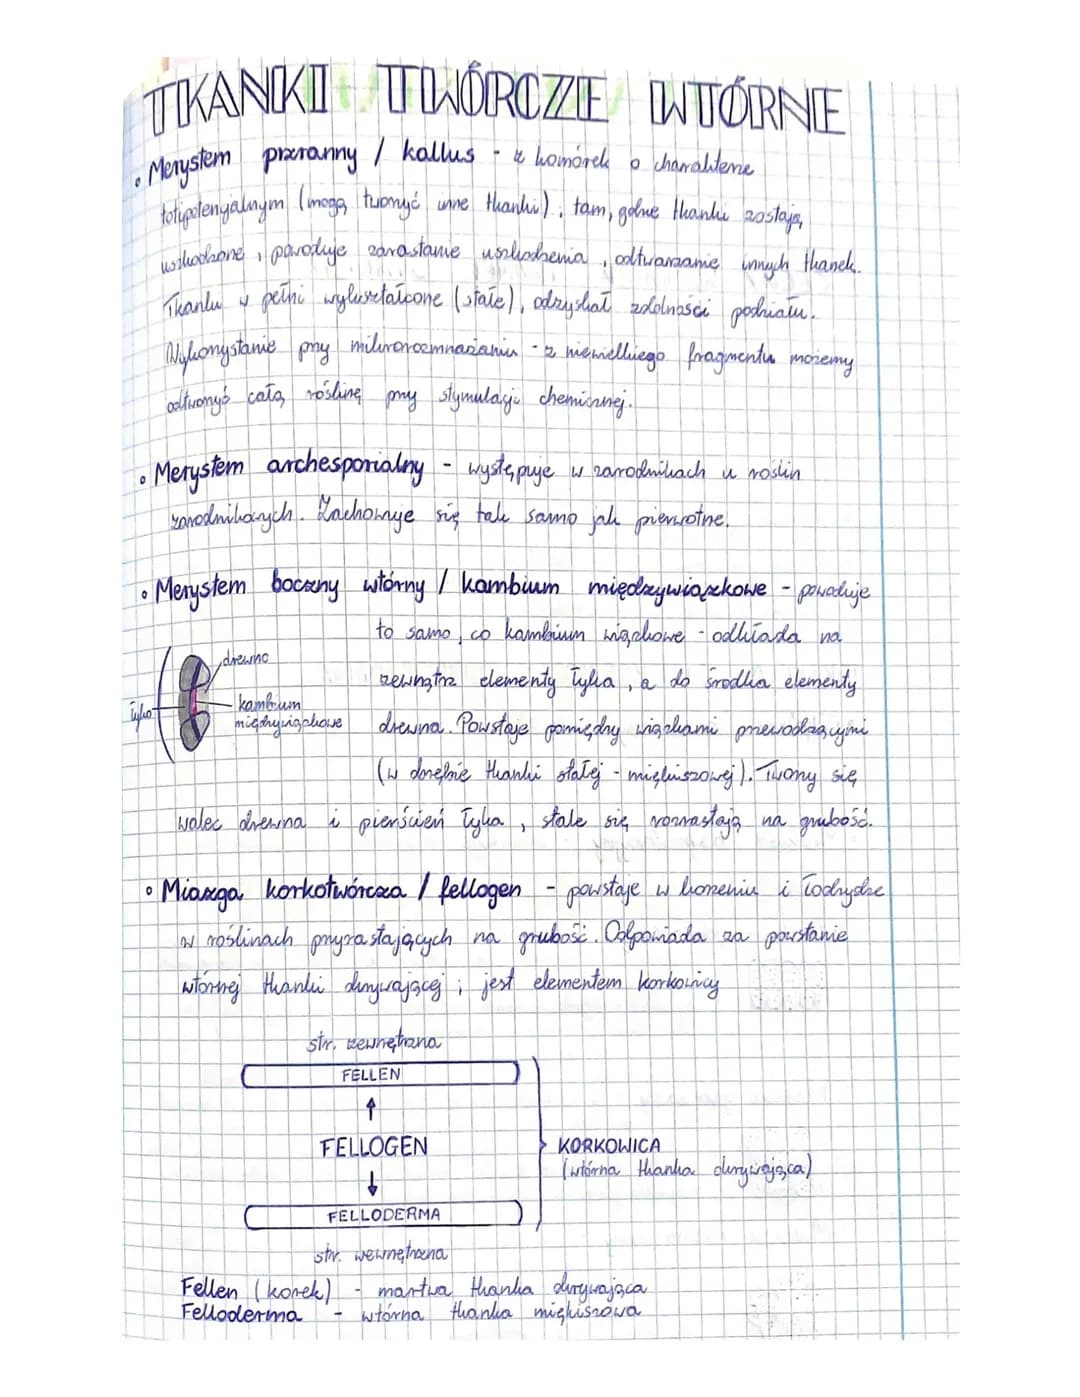 TKANKI TWÓRCZE WTÓRNE
• Merystem przyranny / kallus - z komórek o charakterze
totipotencjalnym (mogą tworzyć inne tkanki), tam, gdzie tkanki zostają
uszkodzone, powoduje zarastanie uszkodzenia, odtwarzanie innych tkanek.
Tkanki w pełni wykształcone (stałe), odzyskał zdolności podziału.
Wykorzystanie przy mikrorozmnażaniu - z niewielkiego fragmentu możemy
odtworzyć całą roślinę przy stymulacji chemicznej.
• Merystem archesporialny - występuje w zarodnikach u roślin
zarodnikowych. Zachowuje się tak samo jak pierwotne.
• Merystem boczny wtórny / kambium międzywiązkowe - powoduje
to samo, co kambium wiązkowe - odkłada na
zewnątrz elementy łyka, a do środka elementy
drewna. Powstaje pomiędzy wiązkami przewodzącymi
(w obrębie tkanki stałej - miękiszowej). Tworzy się
walec drewna i pierścień łyka, stale się rozrastają na grubość.
drewno
łyko
kambium
międzywiązkowe
• Miazga korkotwórcza / fellogen - powstaje w korzeniu i łodydze
w roślinach przyrastających na grubość. Odpowiada za powstanie
wtórnej tkanki okrywającej; jest elementem korkowicy
str. zewnętrzna
FELLEN
FELLOGEN
KORKOWICA
(wtórna tkanka okrywająca)
FELLODERMA
str. wewnętrzna
Fellen (korek) - martwa tkanka okrywająca
Felloderma - wtórna tkanka miękiszowa